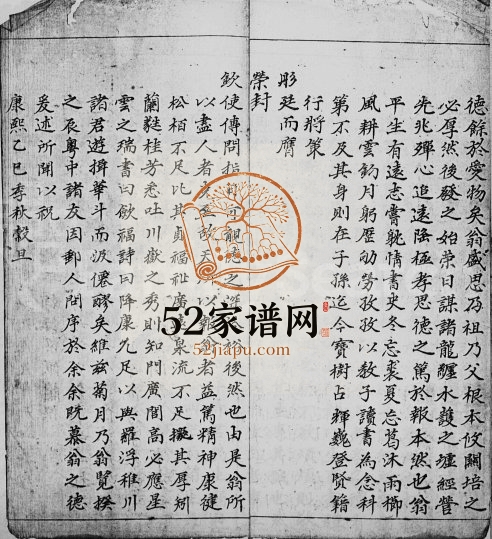 德餘於愛物矣翁感思乃祖乃父根本攸關培之
必厚然後發之始榮日謀諸龍蟠水護之壟經營
先兆殫心追遠隆極孝思德之篤於報本然也翁
平生有遠志嘗躭情書史冬忘裘夏忘葛沐雨櫛
風耕雲釣月躬歷劬勞孜孜以教子讀書為念科
第不及其身則在子孫迄今寶樹占輝巍登賢籍
行將策
彤廷而膺
榮封
欽使傳問指
裕後然也由是翁所
以盡人者
者益篤精神康健
松柏不足比其貞福祉廣
泉流不足擬其厚矧
蘭蕤桂芳悉吐川嶽之秀則知門廣閭高必應星
雲之瑞書曰飲福詩曰降康允足以與羅浮稚川
諸君遊搏華斗而汲僊醪矣維茲菊月乃翁覽揆
之辰粵中諸友因郵人問序於余余既慕翁之德
爰述所聞以祝
康熙乙巳季秋穀旦
52家谱网
52jiapu.com